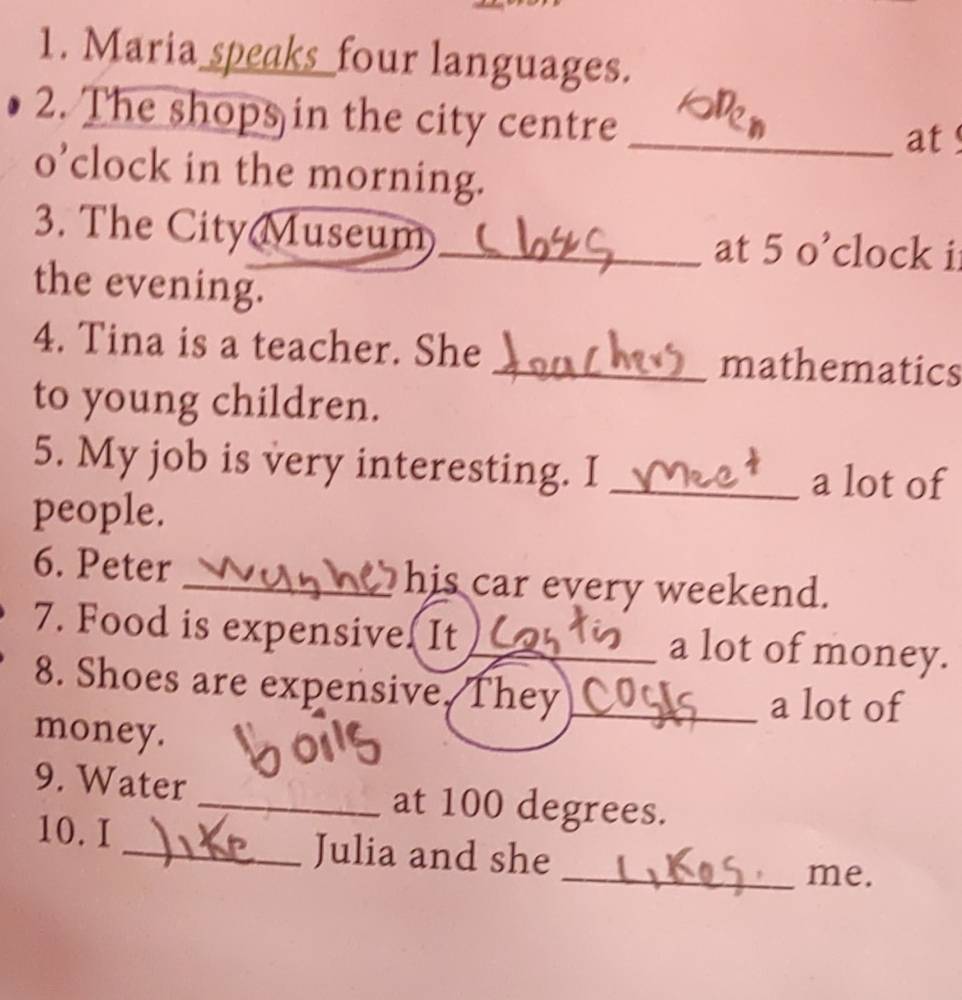 1. Maria speaks four languages.
2. The shops in the city centre open at
o'clock in the morning.
3. The City Museum closes at 5 o'clock
the evening.
4. Tina is a teacher. She teachers mathematics
to young children.
5. My job is very interesting. I meet a lot of
people.
6. Peter washes his car every weekend.
7. Food is expensive. It a lot of money.
8. Shoes are expensive. They costs a lot of
money. boils
9. Water at 100 degrees.
10. I like Julia and she likes. me.